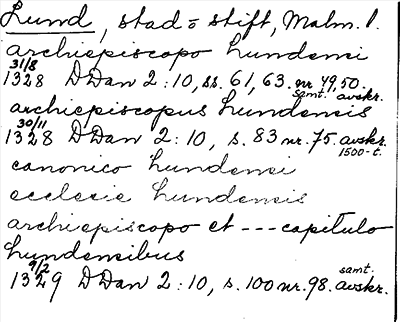 Lund, stad o stift, Malm. l.
archiepiscopo Lundensi
31/8
1328 DDan 2:10, ss. 61, 63. nr 49, 50.
samt. avskr.
archiepiscopus Lundensis
30/11
1328 DDan 2:10, s. 83 nr. 75. avskr.
1500-t.
canonico Lundensi
ecclesie Lundensis
archiepiscopo et --- capitulo
Lundensibus
9/2 samt.
1329 DDan 2:10, s. 100 nr. 98. avskr.